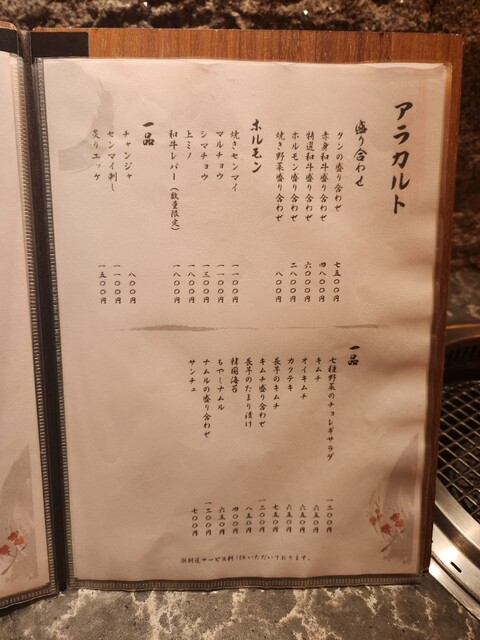 アラカルト
盛り合わせ
タンの盛り合わせ 七五〇〇円
赤身和牛盛り合わせ 四八〇〇円
特選和牛盛り合わせ 六〇〇〇円
ホルモン盛り合わせ 二八〇〇円
焼き野菜盛り合わせ 八〇〇円
ホルモン
焼きセンマイ 一一〇〇円
マルチョウ 一一〇〇円
シマチョウ 一三〇〇円
上ミノ 一八〇〇円
和牛レバー（数量限定） 一八〇〇円
一品
チャンジャ 八〇〇円
センマイ刺し 一一〇〇円
炙りユッケ 一五〇〇円
一品
七種野菜のチョレギサラダ 一二〇〇円
キムチ 六五〇円
オイキムチ 六五〇円
カクテキ 六五〇円
長芋のキムチ 七五〇円
キムチ盛り合わせ 一二〇〇円
長芋のたまり漬け 八五〇円
韓国海苔 四〇〇円
もやしナムル 六五〇円
ナムルの盛り合わせ 一二〇〇円
サンチュ 七〇〇円
※別途サービス料10%いただいております。